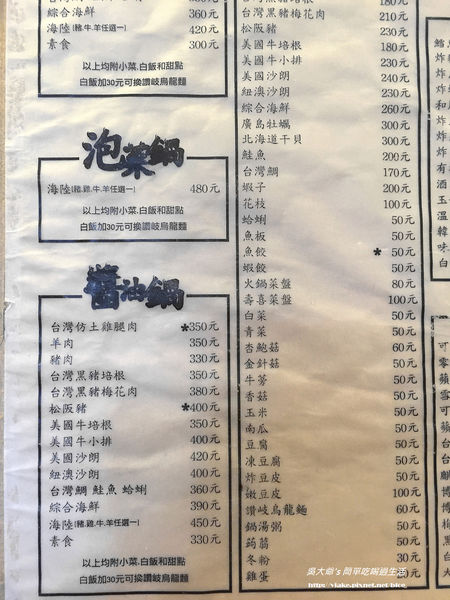 綜合海鮮 360元
海陸(豬.雞.牛.羊任選一) 420元
素食 300元
以上均附小菜.白飯和甜點
白飯加30元可換讚岐烏龍麵
泡菜鍋
海陸(豬.雞.牛.羊任選一) 480元
以上均附小菜.白飯和甜點
白飯加30元可換讚岐烏龍麵
醬油鍋
台灣仿土雞腿肉 *350元
羊肉 350元
豬肉 330元
台灣黑豬培根 350元
台灣黑豬梅花肉 380元
松阪豬 *400元
美國牛培根 350元
美國牛小排 400元
美國沙朗 420元
紐澳沙朗 400元
台灣鯛 鮭魚 蛤蜊 360元
綜合海鮮 390元
海陸(豬.雞.牛.羊任選一) 450元
素食 330元
以上均附小菜.白飯和甜點
白飯加30元可換讚岐烏龍麵
台灣黑豬培根 180元
台灣黑豬梅花肉 210元
松阪豬 230元
美國牛培根 180元
美國牛小排 230元
美國沙朗 240元
紐澳沙朗 230元
綜合海鮮 260元
廣島牡蠣 300元
北海道干貝 300元
鮭魚 200元
台灣鯛 170元
蝦子 200元
花枝 100元
蛤蜊 50元
魚板 50元
魚餃 * 50元
蝦餃 50元
火鍋菜盤 80元
壽喜菜盤 100元
白菜 50元
青菜 50元
杏鮑菇 60元
金針菇 50元
牛蒡 50元
香菇 50元
玉米 50元
南瓜 50元
豆腐 50元
凍豆腐 50元
炸豆皮 50元
嫩豆皮 100元
讚岐烏龍麵 60元
鍋湯粥 50元
蒟蒻 50元
冬粉 30元
雞蛋 20元
吳大爺's 簡單吃喝過生活
http://viake.pixnet.net/blog